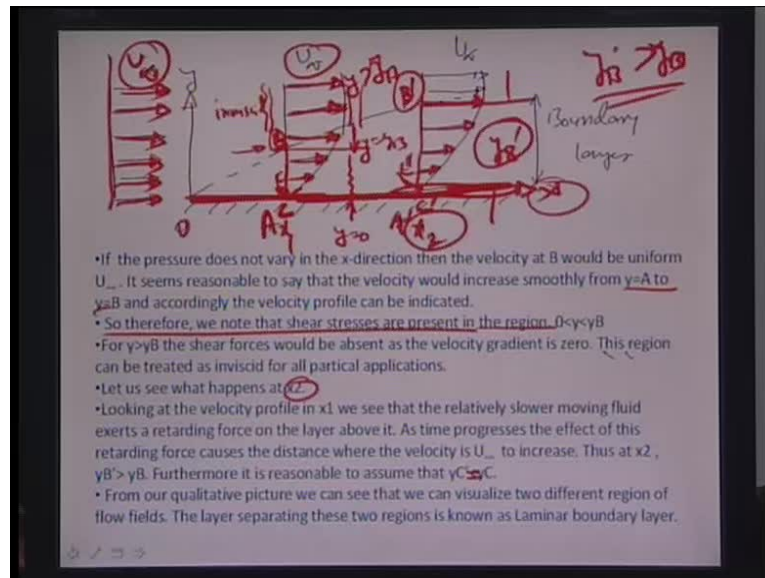 U∞
y
U∞
U∞
yB' > yB
inviscid
y>yB
B'
y=yB
yB'
Boundary
layer
O
A
x1
y=0
A'
x2
•If the pressure does not vary in the x-direction then the velocity at B would be uniform
U∞ . It seems reasonable to say that the velocity would increase smoothly from y=A to
y=B and accordingly the velocity profile can be indicated.
• So therefore, we note that shear stresses are present in the region. 0<y<yB
•For y>yB the shear forces would be absent as the velocity gradient is zero. This region
can be treated as inviscid for all partical applications.
•Let us see what happens at x2.
•Looking at the velocity profile in x1 we see that the relatively slower moving fluid
exerts a retarding force on the layer above it. As time progresses the effect of this
retarding force causes the distance where the velocity is U∞ to increase. Thus at x2 ,
yB'> yB. Furthermore it is reasonable to assume that yC' yC.
• From our qualitative picture we can see that we can visualize two different region of
flow fields. The layer separating these two regions is known as Laminar boundary layer.